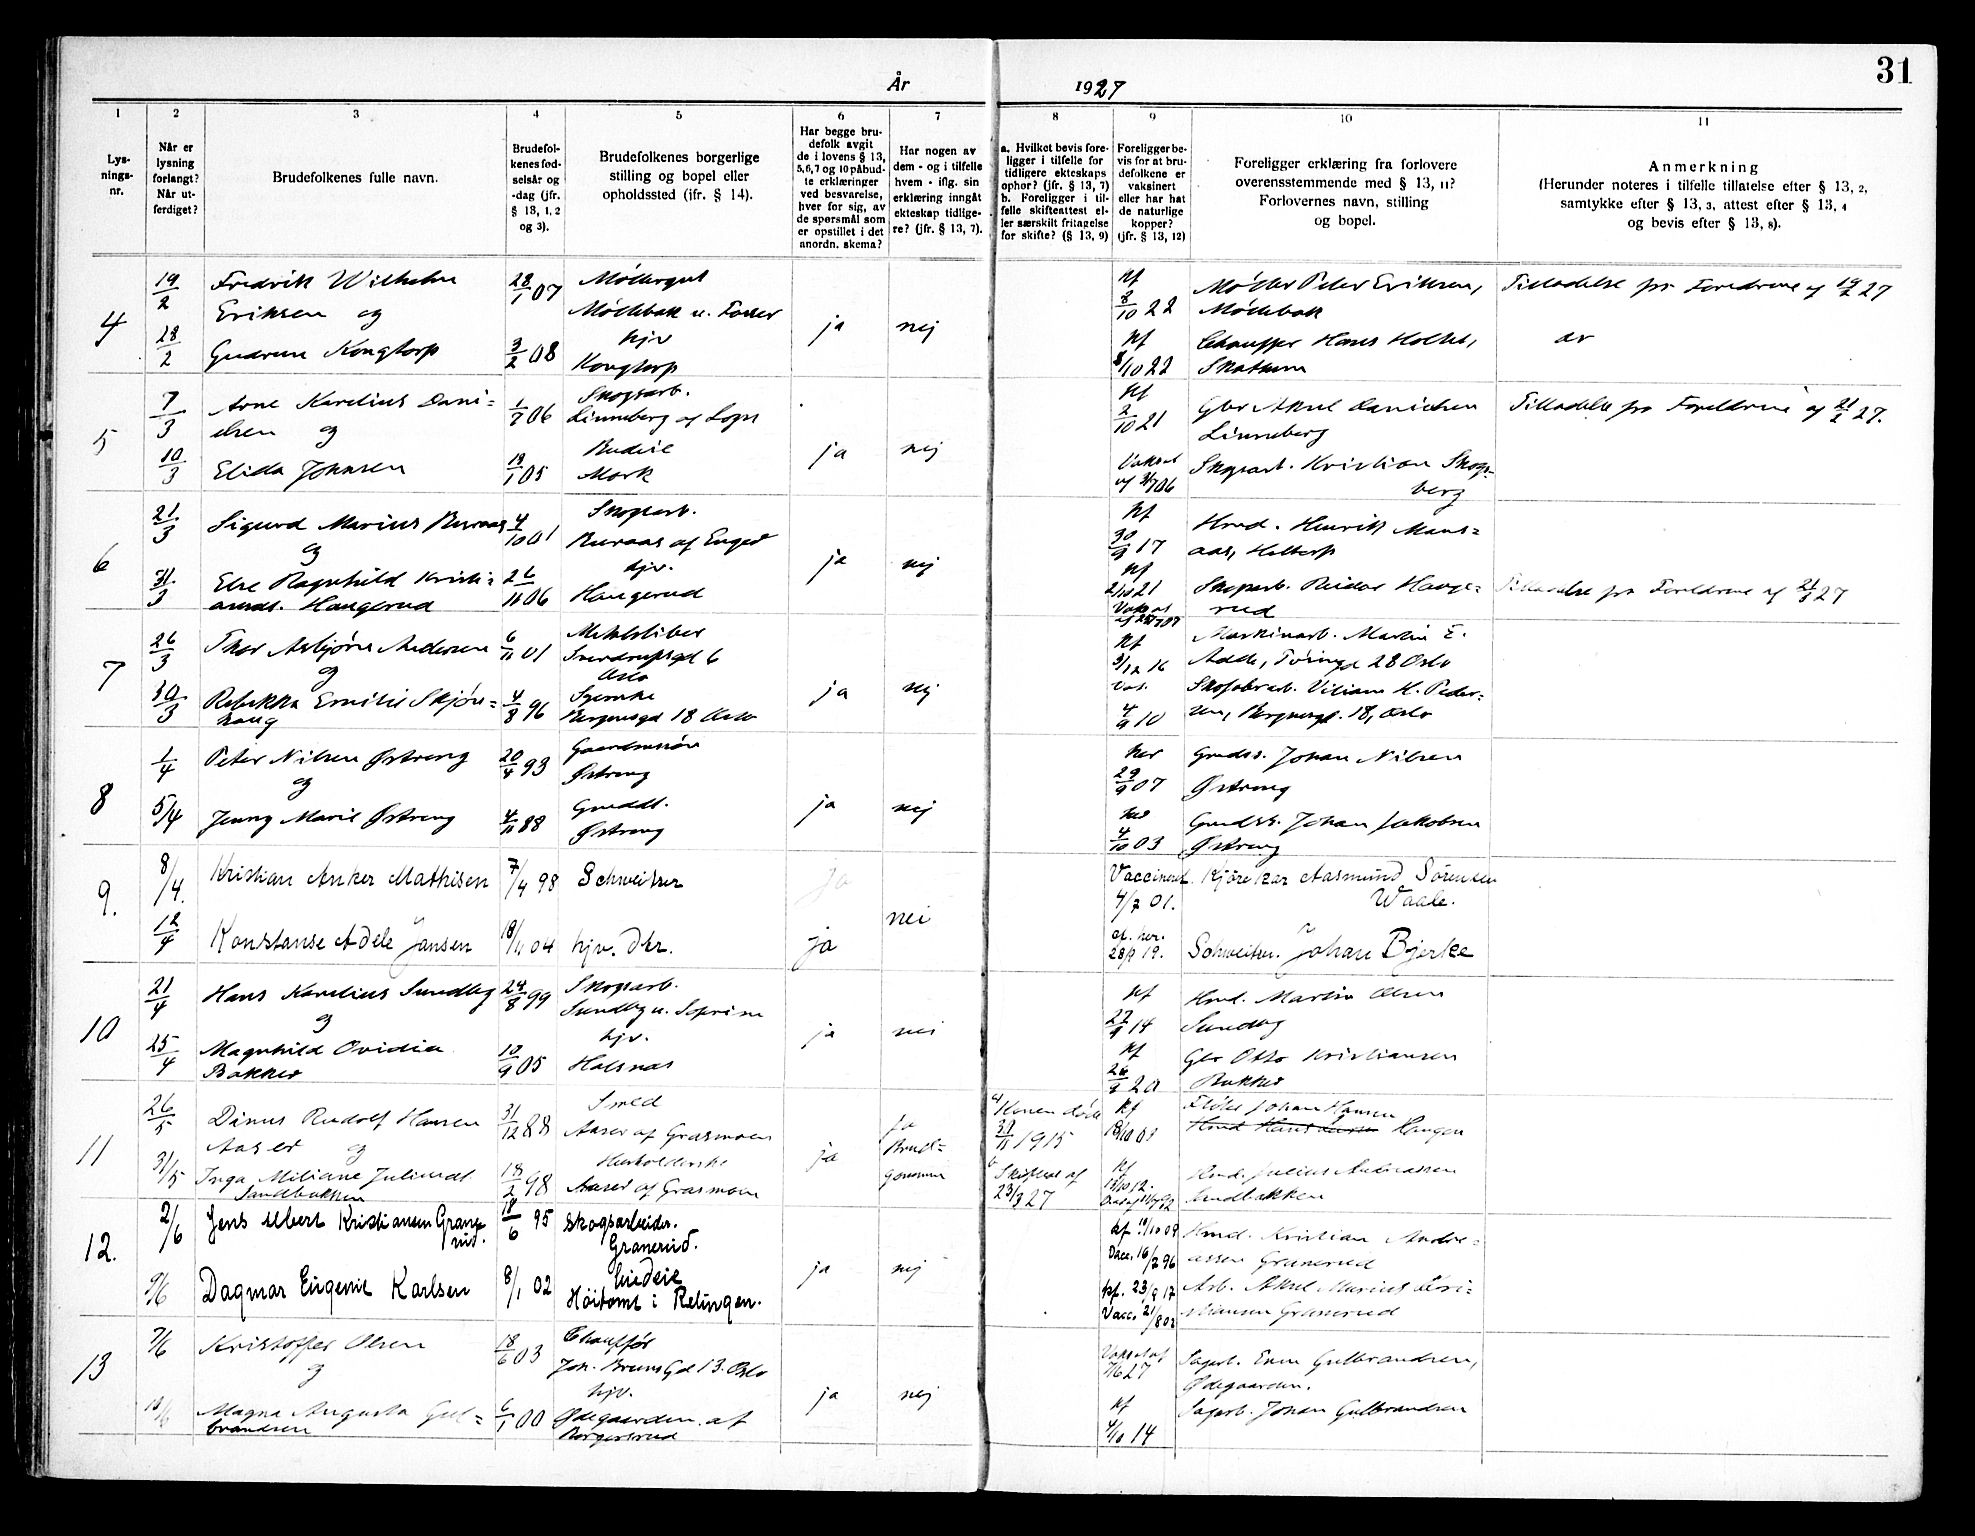 31
År 1927
1 2 3 4 5 6 7 8 9 10 11
Lys-
nings-
nr.
Når er
lysning
forlangt?
Når ut-
ferdiget?
Brudefolkenes fulle navn.
Brudefol-
kenes fød-
selsår og
-dag (jfr.
§ 13, 1, 2
og 3).
Brudefolkenes borgerlige
stilling og bopel eller
opholdssted (jfr. § 14).
Har begge bru-
defolk avgit
de i lovens § 13,
5,6,7 og 10 påbud-
te erklæringer
ved besvarelse,
hver for sig, av
de spørsmål som
er opstillet i det
anordn. skema?
Har nogen av
dem - og i tilfelle
hvem - iflg. sin
erklæring inngåt
ekteskap tidlige-
re? (jfr. § 13, 7).
a. Hvilket bevis fore-
ligger i tilfelle for
tidligere ekteskaps
ophør? (jfr. § 13, 7)
b. Foreligger i til-
felle skifteattest el-
ler særskilt fritagelse
for skifte? (§ 13, 9)
Foreligger be-
vis for at bru-
defolkene er
vaksinert
eller har hat
de naturlige
kopper?
(jfr. § 13, 12)
Foreligger erklæring fra forlovere
overensstemmende med § 13, 11?
Forlovernes navn, stilling
og bopel.
Anmerkning
(Herunder noteres i tilfelle tillatelse efter § 13, 2,
samtykke efter § 13, 3, attest efter § 13, 4
og bevis efter § 13, 8).
4
19/2
28/2
Fredrik Wilhelm
Eriksen og
Gudrun Kongtorp
28/1 07
3/2 08
Møllergut
Møllebak u. Fosser
hjv
Kongtorp
ja
nej
kf
8/10 22
kf
8/10 22
Møller Peter Eriksen,
Møllebak
Chauffør Hans
Tilladelse fra Foreldrene af 19/2 27
5
7/3
10/3
Arne Karelius Dani=
elsen og
Elida Johnsen
1/7 06
19/1 05
Skogsarb.
Linneberg af
Budeie
Mork
ja
nej
kf
2/10 21
Gbr Aksel Danielsen
Linneberg
Skogsarb. Kristian Skogs=
berg
Tilladelse fra Foreldrene af 21/2 27.
6
21/3
31/3
Sigurd Marius Buraas
og
Else Ragnhild Kristi=
ansdt. Haugerud
4/10 01
26/11 06
Skogsarb.
Buraas af Enger
hjv.
Haugerud
ja
nej
kf
30/9 17
kf
2/10 21
Hmd. Henrik
Skogsarb. Reidar Hauge=
rud
Tilladelse fra Foreldrene af 21/3 27
7
26/3
30/3
Thor Asbjørn Andersen
og
Rebekka Emilie Skjøn=
haug
6/11 01
4/8 96
Sverdrupsgd 6
Oslo
Syerske
Bergensgd 18 Oslo
ja
nej
kf
3/12 16
4/9 10
Maskinarb. Martin E.
28 Oslo
sen, Bergensgd. 18, Oslo
8
1/4
5/4
Peter Nilsen Østreng
og
Jenny Marie Østreng
20/4 93
4/11 88
Gaardmandssøn
Østreng
Gmddt.
Østreng
ja
nej
29/9 07
4/10 03
Gmds. Johan Nilsen
Østreng
Gmds. Johan Jakobsen
Østreng
9.
8/4.
12/4
Kristian Anker Mathisen
Konstanse Adele Jansen
7/4 98
18/11 04
Schweitser
hjv. Dtr.
ja
ja
nei
Vaccineret
4/7 01.
Kjørekar Aasmund Sørensen
Waale.
Schweitser. Johan Bjerke
10
21/4
25/4
Hans Karelius Sundby
og
Magnhild Ovidia
Bakker
24/8 99
10/9 05
Skogsarb.
Sundby u.
hjv.
Halsnas
ja
nei
kf
27/9 14
kf
26/9 20
Hmd. Martin Olsen
Sundby
Gbr Otto Kristiansen
Bakker
11
26/5
31/5
Rudolf Hansen
Aaser og
Inga Miliane Juliusdt.
Sandbakken
31/12 88
18/2 98
Smed
Aaser af Grasmoen
Husholderske
Aaser af Grasmoen
ja
ja
Brud=
gommen
a Konen død
1915
b Skifteat af
23/3 27
kf
18/10 03
kf
Johan Hansen
Haugen
Hmd. Julius Andreassen
Sandbakken
12.
2/6
9/6
Jens Albert Kristiansen Grane-
rud.
Dagmar Eugenie Karlsen
18/6 95
8/1 02
Skogsarbeider.
Granerud.
budeie
Høitomt i Rælingen.
ja
nej
kf 10/10 09
Vacc. 16/7 96
kf. 23/9 17
Vacc. 21/8 02
Hmd. Kristian Andre=
assen Granerud
Arb. Aksel Marius Kri=
stiansen Granerud
13
7/6
Kristoffer Olsen
og
Magna Augusta Gul=
brandsen
18/6 03
6/1 00
Chauffør
Joh. Bruns Gd 13. Oslo
hjv.
Ødegaarden af
Borgersrud
ja
nej
kf
4/10 14
Sagarb. Gulbrandsen,
Ødegaarden.
Sagarb. Johan Gulbrandsen